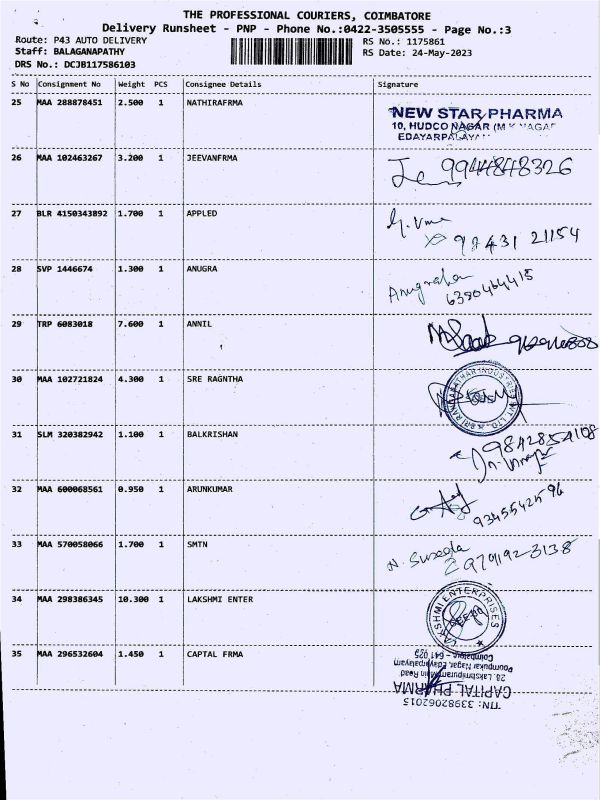 THE PROFESSIONAL COURIERS, COIMBATORE
Delivery Runsheet - PNP - Phone No.:0422-3505555 - Page No.:3
Route: P43 AUTO DELIVERY RS No.: 1175861
Staff: BALAGANAPATHY RS Date: 24-May-2023
DRS No.: DCJB117586103
S No Consignment No Weight PCS Consignee Details Signature
25 MAA 288878451 2.500 1 NATHIRAFRMA
NEW STAR PHARMA
10, HUDCO NAGAR
EDAYARPALAYAM
26 MAA 102463267 3.200 1 JEEVANFRMA
9944848326
27 BLR 4150343892 1.700 1 APPLED
98431 21154
28 SVP 1446674 1.300 1 ANUGRA
Anugraha
6380464415
29 TRP 6083018 7.600 1 ANNIL
30 MAA 102721824 4.300 1 SRE RAGNTHA
31 SLM 320382942 1.100 1 BALKRISHAN
9842854108
32 MAA 600068561 0.950 1 ARUNKUMAR
9345542596
33 MAA 570058066 1.700 1 SMTN
97919 2-3138
34 MAA 298386345 10.300 1 LAKSHMI ENTER
LAKSHMI ENTERPRISES
35 MAA 296532604 1.450 1 CAPTAL FRMA
TIN: 33982062015
CAPITAL PHARMA
28, Lakshmipuram Main Road
Poompukar Nagar, Edayarpalayam
Coimbatore - 641 025